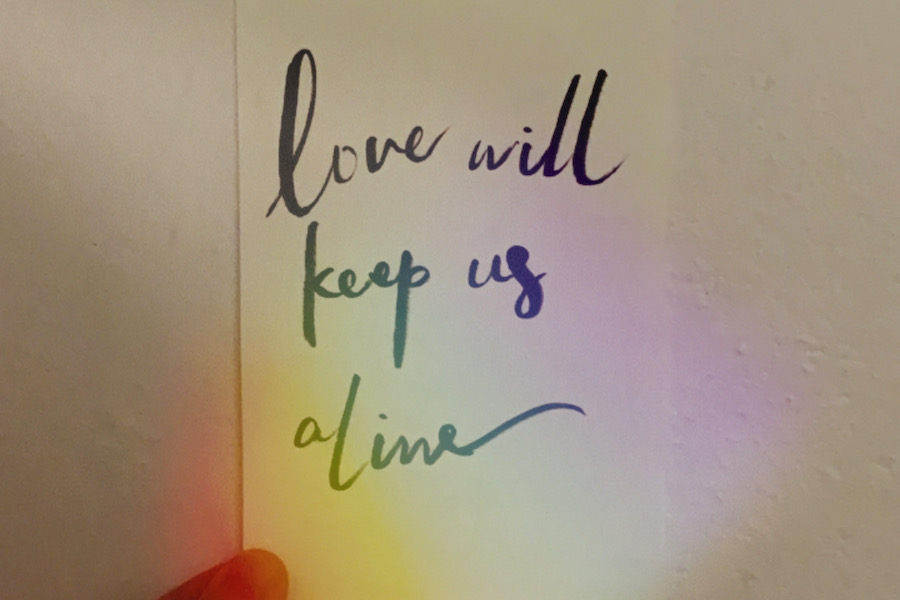 love will
keep us
alive